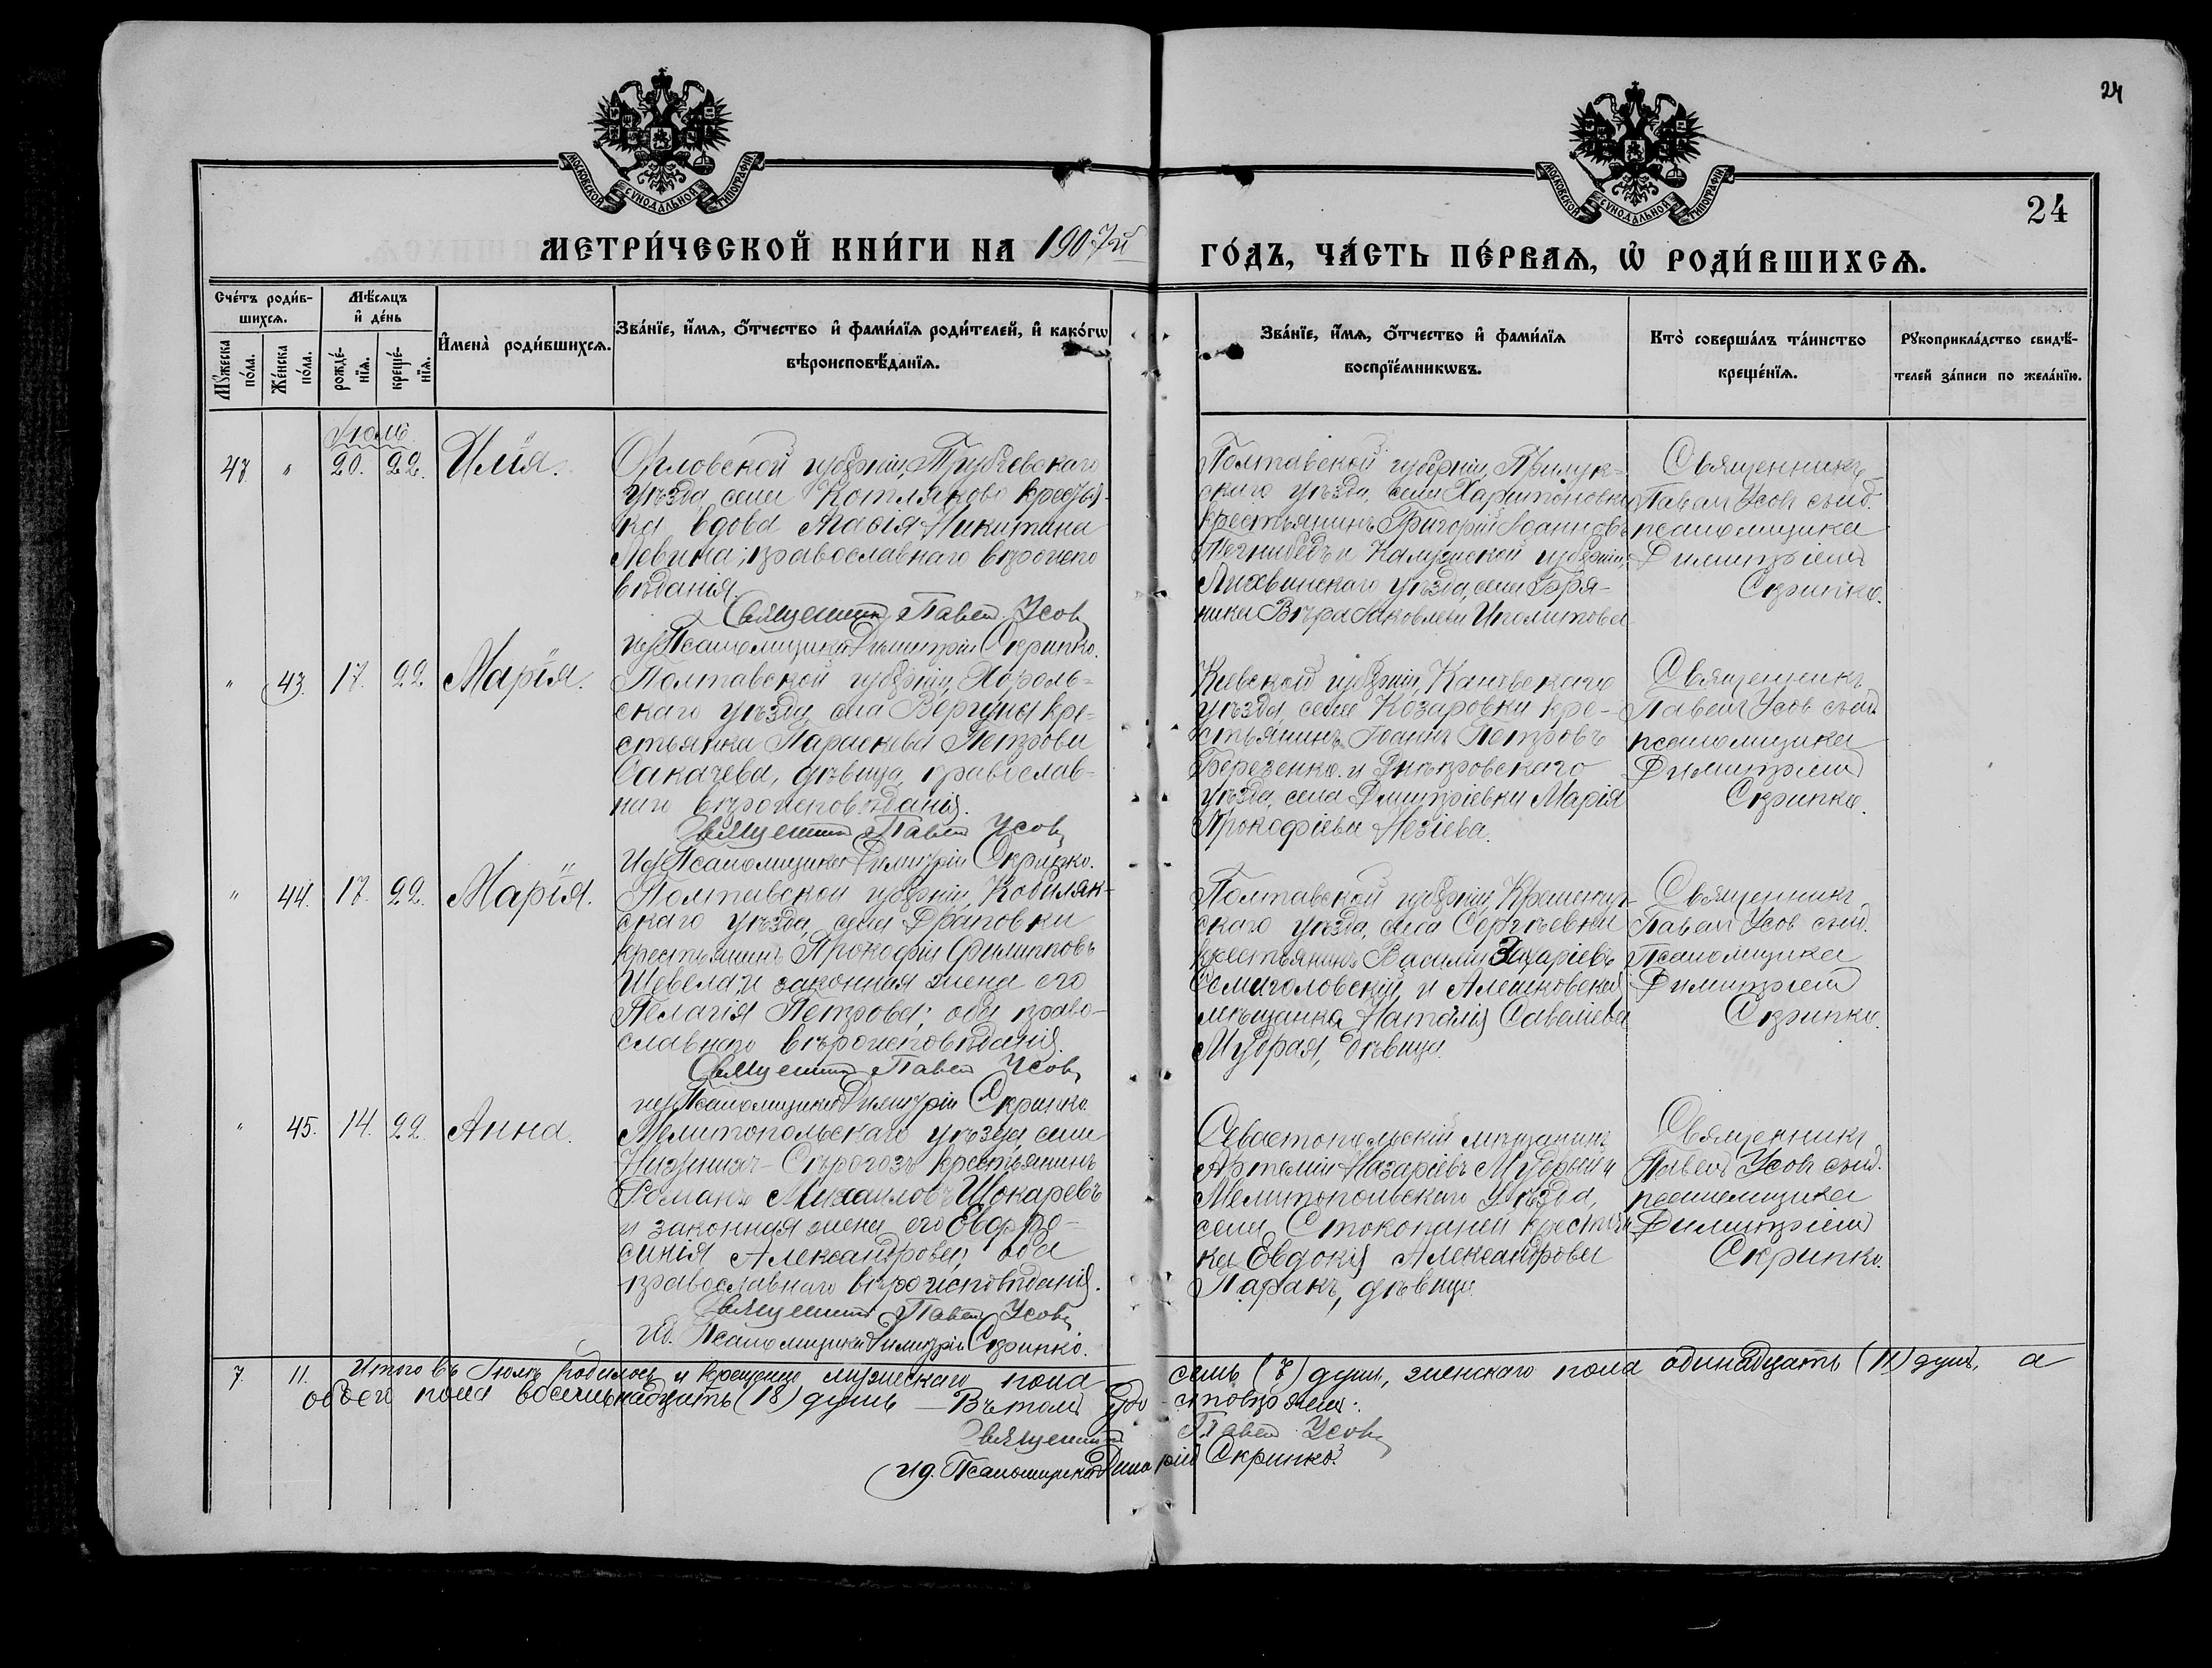 24
МОСКОВСКОЙ СѴНОДАЛЬНОЙ ТИПОГРАФІИ
МОСКОВСКОЙ СѴНОДАЛЬНОЙ ТИПОГРАФІИ
24
МЕТРИ́ЧЕСКОЙ КНИ́ГИ НА 1907й
ГО́ДЪ, ЧА́СТЬ ПЕ́РВАѦ, Ѡ҆ РОДИ́ВШИХСѦ.
Сче́тъ роди́в-
шихсѧ.
Мѣ́сѧцъ
и҆ де́нь
Мꙋ́жеска
по́ла.
Же́нска
по́ла.
рожде́-
нїѧ.
креще́-
нїѧ.
И҆мена̀ роди́вшихсѧ.
Зва́нїе, и҆́мѧ, ѻ҆́тчество и҆ фами́лїѧ роди́телей, и҆ како́гѡ
вѣроисповѣ́данїѧ.
Зва́нїе, и҆́мѧ, ѻ҆́тчество и҆ фами́лїѧ
воспрїе́мникѡвъ.
Кто̀ соверша́лъ та́инство
креще́нїѧ.
Рꙋкоприкла́дство свидѣ́-
телей за́писи по жела́нїю.
Іюль
47 " 20. 22. Илія.
Орловской губерніи, Трубчевскаго
уѣзда, села Котляково крестьян-
ка вдова Никитина
Левина; православнаго вѣроиспо
вѣданія.
Священникъ Павелъ Усовъ
Псаломщика Димитрій Скрипко.
Полтавской губерніи, Прилук-
скаго уѣзда, села Харитоновки
крестьянинъ Григорій Іоанновъ
и Калужской губерніи,
Лихвинскаго уѣзда, села
Вѣра Яковлева Иполитова
Священникъ
Павелъ Усовъ съ и.д.
псаломщика
Димитріемъ
Скрипко.
" 43. 17. 22 Марія.
Полтавской губерніи, Хороль-
скаго уѣзда, села Вергуны кре-
стьянка Параскева Петрова
Сакачева, дѣвица, православ-
наго вѣроисповѣданія.
Священникъ Павелъ Усовъ
Ид Псаломщика Димитрій Скрипко.
Кіевской губерніи, Каневскаго
уѣзда, села Козаровки кре-
стьянинъ Іоаннъ Петровъ
Березенко. и Днѣпровскаго
уѣзда, села Дмитріевки Марія
Прокофіева
Священникъ
Павелъ Усовъ съ и.д.
псаломщика
Димитріемъ
Скрипко.
" 44. 17. 22. Марія.
Полтавской губерніи, Кобиляк-
скаго уѣзда, села
крестьянинъ Прокофій Филипповъ
Шевела и законная жена его
Пелагія Петрова; оба право-
славнаго вѣроисповѣданія.
Священникъ Павелъ Усовъ
ид Псаломщика Димитрій Скрипко.
Полтавской губерніи Кременчуг-
скаго уѣзда, села Сергѣевки
крестьянинъ Василій Захаріевъ
Семиголовскій и Алешковская
мѣщанка Наталія Савелева
Мудрая, дѣвица.
Священникъ
Павелъ Усовъ съ и.д.
Псаломщика
Димитріемъ
Скрипко.
" 45. 14. 22. Анна.
Мелитопольскаго уѣзда, села
Нижнихъ-Сѣрогозъ крестьянинъ
Романъ Михаиловъ Щокаревъ
и законная жена его Евфро-
синія Александрова, оба
православнаго вѣроисповѣданія.
Священникъ Павелъ Усовъ
ид. Псаломщика Димитрій Скрипко.
Севастопольскій мѣщанинъ
Артемій Назаріевъ Мудрый и
Мелитопольскаго уѣзда,
села Стокопаней крестьян
ка Евдокія Александрова
Паракъ, дѣвица.
Священникъ
Павелъ Усовъ съ и.д.
псаломщика
Димитріемъ
Скрипко.
7. 11. Итого въ Іюлѣ родилось и крещено мужескаго пола семь (7) душъ, женскаго пола одинадцать (11) душъ, а
обоего пола восемьнадцать (18) душъ — Въ томъ удостовѣряемъ.
Священникъ Павелъ Усовъ
ид. Псаломщика Димитрій Скрипко.